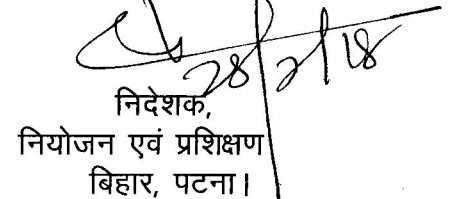 28/2/18
निदेशक,
नियोजन एवं प्रशिक्षण
बिहार, पटना।